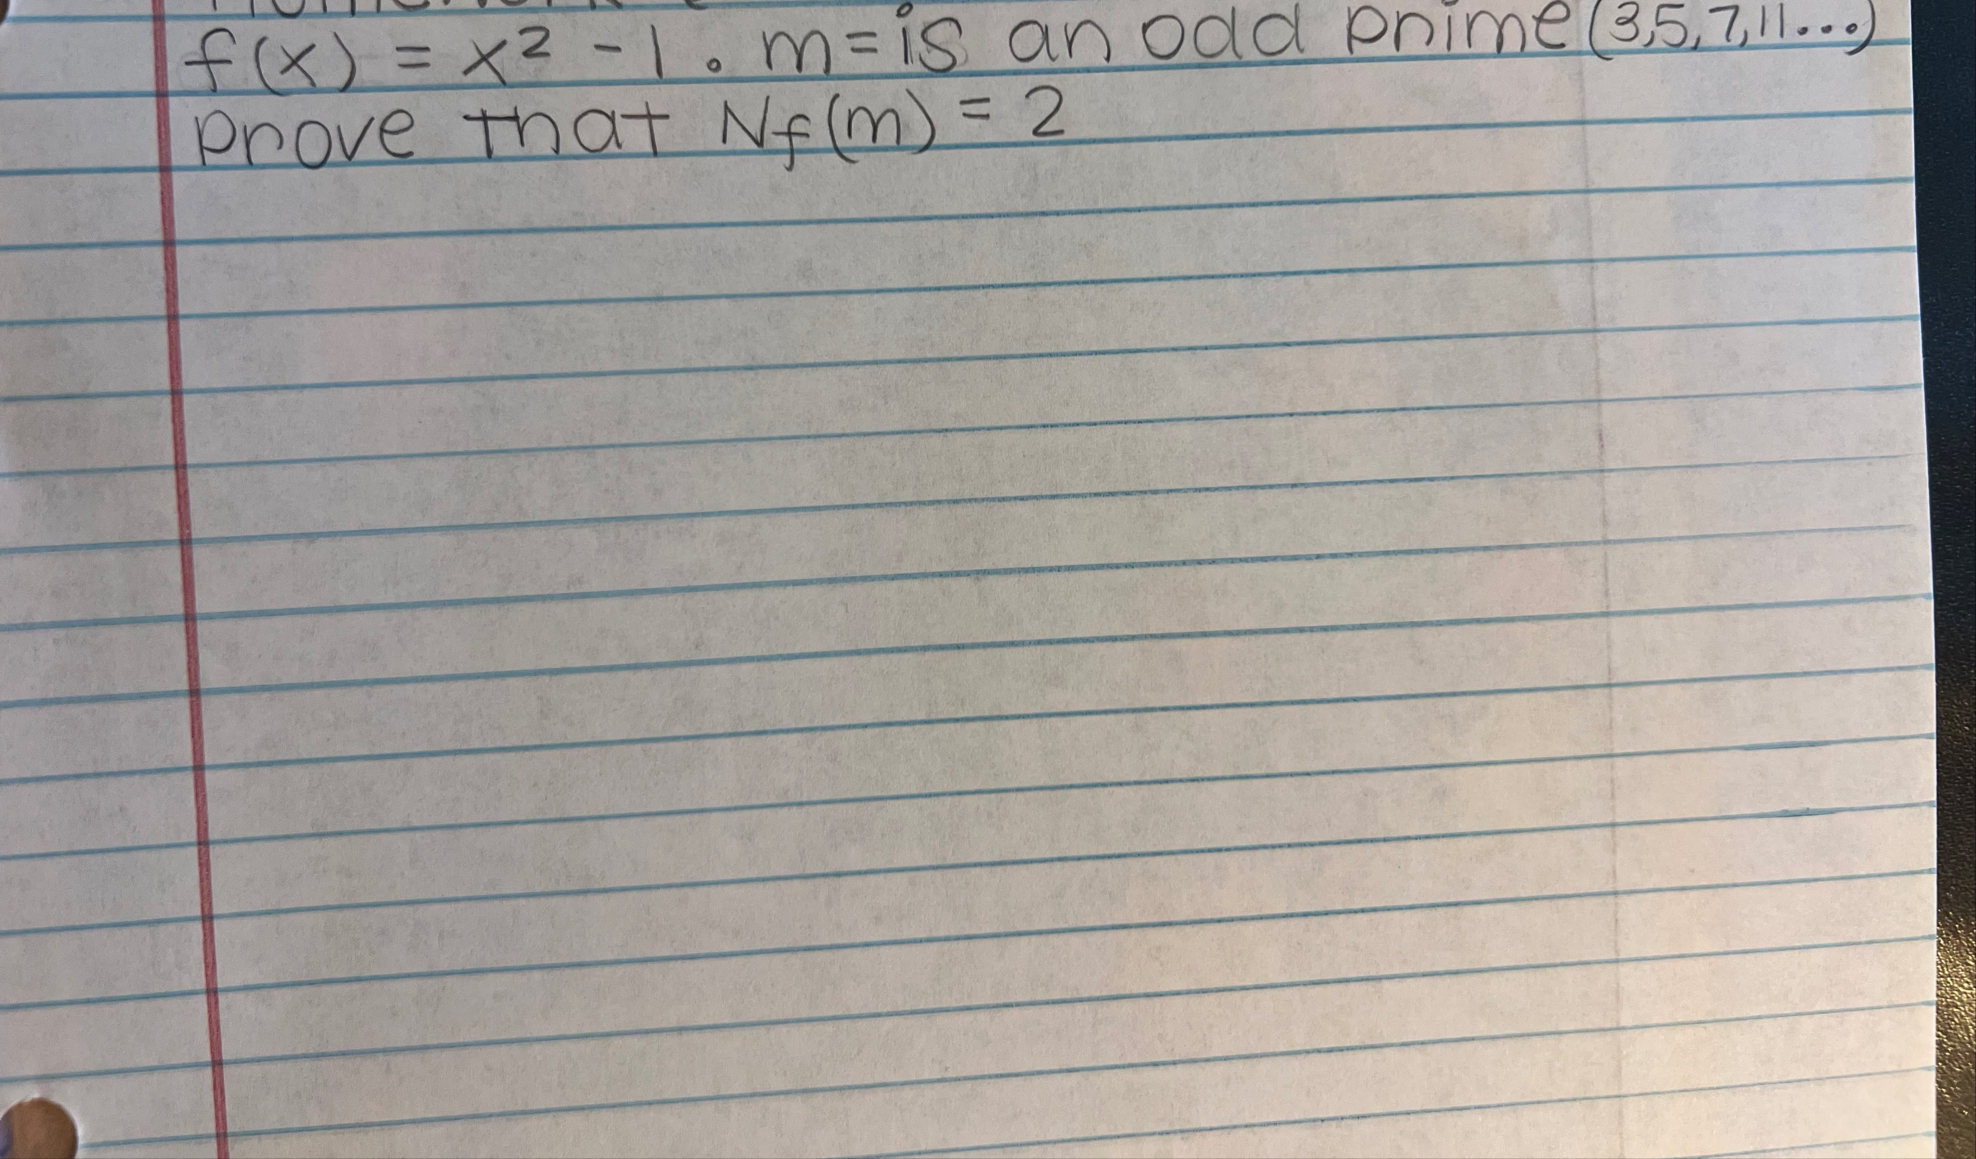 f(x) = x² - 1. m = is an odd prime (3,5,7,11...)
prove that Nf(m) = 2